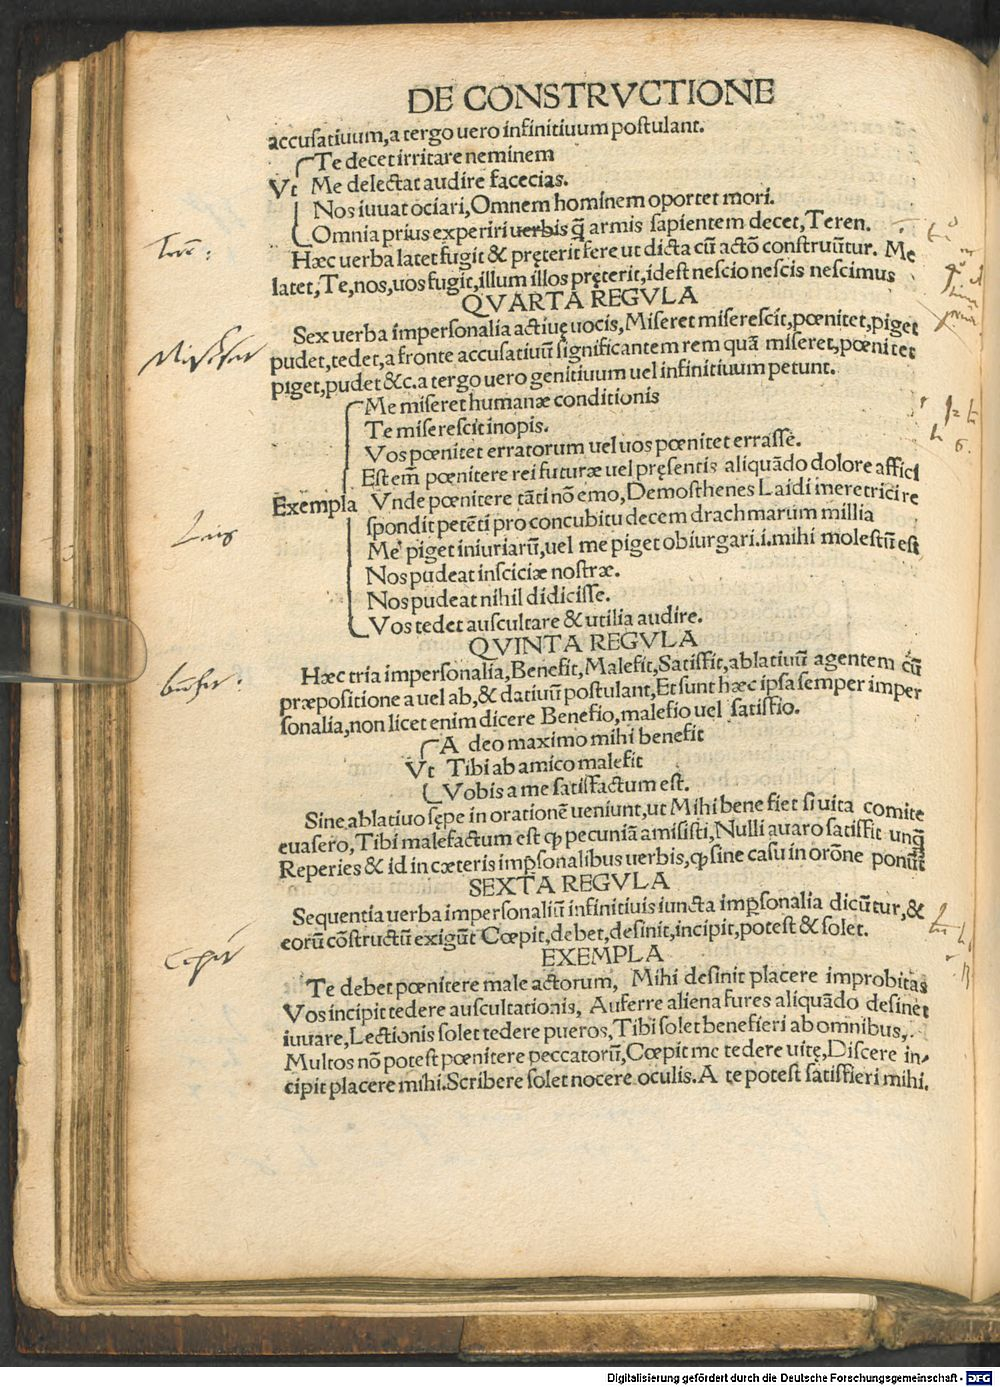 DE CONSTRVCTIONE
accusatiuum, a tergo uero infinitiuum postulant.
Te decet irritare neminem
Vt Me delectat audire facecias.
Nos iuuat ociari, Omnem hominem oportet mori.
Omnia prius experiri uerbis q̃ armis sapientem decet, Teren.
Hæc uerba latet fugit & pręterit fere ut dicta cũ actõ construũtur. Me
latet, Te, nos, uos fugit, illum illos pręterit, id est nescio nescis nescimus
QVARTA REGVLA
Sex uerba impersonalia actiuę uocis, Miseret miserescit, pœnitet, piget
pudet, tedet, a fronte accusatiuũ significantem rem quã miseret, pœnitet
piget, pudet &c. a tergo uero genitiuum uel infinitiuum petunt.
Me miseret humanæ conditionis
Te miserescit inopis.
Vos pœnitet erratorum uel uos pœnitet errasse.
Est em̃ pœnitere rei futuræ uel pręsentis aliquãdo dolore affici
Exempla Vnde pœnitere tãti nõ emo, Demosthenes Laidi meretrici re
spondit petẽti pro concubitu decem drachmarum millia
Me piget iniuriarũ, uel me piget obiurgari .i. mihi molestũ est
Nos pudeat insciciæ nostræ.
Nos pudeat nihil didicisse.
Vos tedet auscultare & utilia audire.
QVINTA REGVLA
Hæc tria impersonalia, Benefit, Malefit, Satisfit, ablatiuũ agentem cũ
præpositione a uel ab, & datiuũ postulant, Et sunt hæc ipsa semper imper
sonalia, non licet enim dicere Benefio, malefio uel satisfio.
A deo maximo mihi benefit
Vt Tibi ab amico malefit
Vobis a me satisfactum est.
Sine ablatiuo sępe in orationẽ ueniunt, ut Mihi bene fiet si uita comite
euasero, Tibi malefactum est ꝙ pecuniã amisisti, Nulli auaro satisfit unq̃
Reperies & id in cæteris imp̱sonalibus uerbis, ꝙ sine casu in orõne ponũt
SEXTA REGVLA
Sequentia uerba impersonaliũ infinitiuis iuncta imp̱sonalia dicũtur, &
eorũ cõstructũ exigũt Cœpit, debet, desinit, incipit, potest & solet.
EXEMPLA
Te debet pœnitere male actorum, Mihi desinit placere improbitas
Vos incipit tedere auscultationis, Auferre aliena fures aliquãdo desinet
iuuare, Lectionis solet tedere pueros, Tibi solet benefieri ab omnibus,
Multos nõ potest pœnitere peccatorũ, Cœpit me tedere uitę, Discere in-
cipit placere mihi. Scribere solet nocere oculis. A te potest satisfieri mihi.
Digitalisierung gefördert durch die Deutsche Forschungsgemeinschaft - DFG